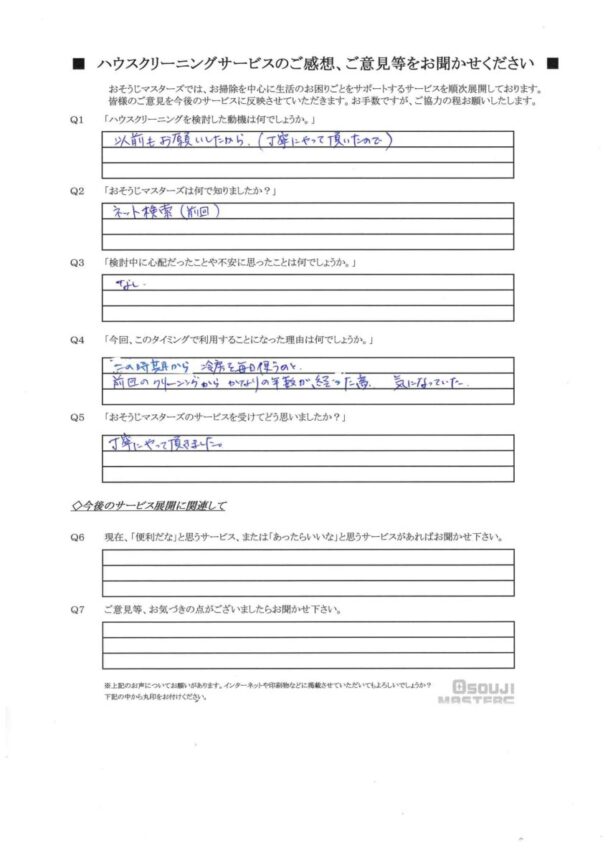 ■ ハウスクリーニングサービスのご感想、ご意見等をお聞かせください ■
おそうじマスターズでは、お掃除を中心に生活のお困りごとをサポートするサービスを順次展開しております。
皆様のご意見を今後のサービスに反映させていただきます。お手数ですが、ご協力の程お願いしたします。
Q1 「ハウスクリーニングを検討した動機は何でしょうか。」
以前もお願いしたから。(丁寧にやって頂いたので)
Q2 「おそうじマスターズは何で知りましたか?」
ネット検索(前回)
Q3 「検討中に心配だったことや不安に思ったことは何でしょうか。」
なし.
Q4 「今回、このタイミングで利用することになった理由は何でしょうか。」
この時期から 冷房を毎日使うのと.
前回のクリーニングから かなりの年数が、経った為. 気になっていた.
Q5 「おそうじマスターズのサービスを受けてどう思いましたか?」
丁寧にやって頂きました。
◇今後のサービス展開に関連して
Q6 現在、「便利だな」と思うサービス、または「あったらいいな」と思うサービスがあればお聞かせ下さい。
Q7 ご意見等、お気づきの点がございましたらお聞かせ下さい。
※上記のお声についてお願いがあります。インターネットや印刷物などに掲載させていただいてもよろしいでしょうか?
下記の中から丸印をお付けください。
OSOUJI
MASTERS